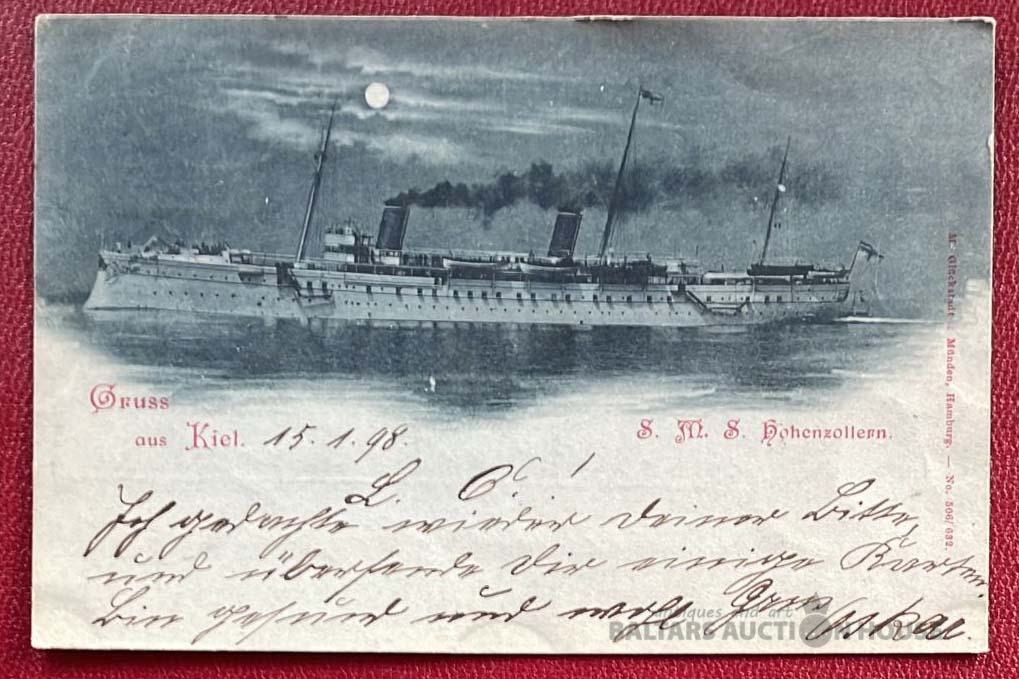 Gruss
aus Kiel. 15.1.98.
S. M. S. Hohenzollern.
M. Glückstadt & Münden, Hamburg. — No. 506/632.
L. C. !
Ich gedachte wieder Deiner Bitte,
und übersende Dir einige Karten.
Bin gesund und wohl Gruß
Oskar.
antiques and art
BALTARS AUCTION HOUSE